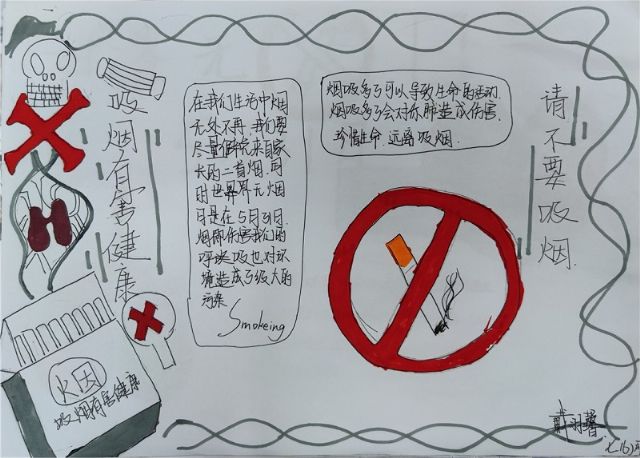 吸烟有害健康
在我们生活中烟
无处不再,我们要
尽量
长的二首烟,同
时世界无烟
日是在5月31日.
烟即伤害我们的
呼吸也对环
境造成了极大的
污染
Smokeing
烟吸多了可以导致生命的
烟吸多了会对你肺造成伤害.
珍惜生命,远离吸烟.
请不要吸烟.
火因
吸烟有害健康